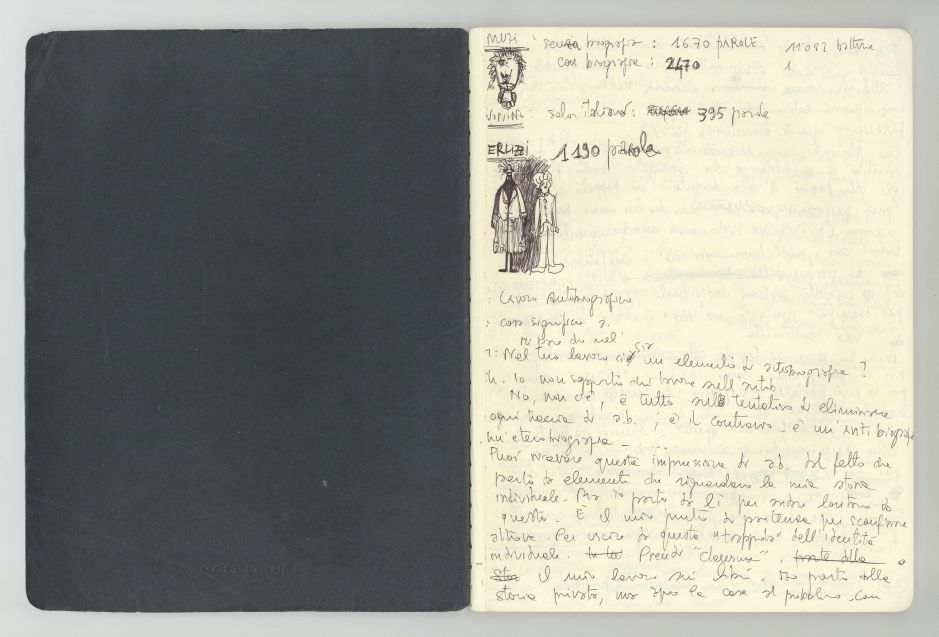 MUZI
senza biografia : 1670 PAROLE 11082 battute
con biografia : 2470 1
salor italiano : 395 parole
ERUZZI 1190 parole
: Lavoro Autobiografico
: cosa significa ?
Mi pare che nel
Nel tuo lavoro ci sia un elemento di autobiografia ?
Io non sopporto chi lavora sull'autob.
No, non c'è, è tutto nel tentativo di eliminare
ogni traccia di a.b. ; è il contrario - è un'anti biografia
un'eterobiografia - ...
Puoi ricavare questa impressione di a.b. dal fatto che
parto da elementi che riguardano la mia storia
individuale. Ma io parto da lì per andare lontano da
questo. È il mio punto di partenza per sconfinare
altrove. Per uscire da questa "trappola" dell'identità
individuale. Prendi "
Il mio lavoro sui libri. Io parto dalla
storia privata, ma apro la casa al pubblico. Con